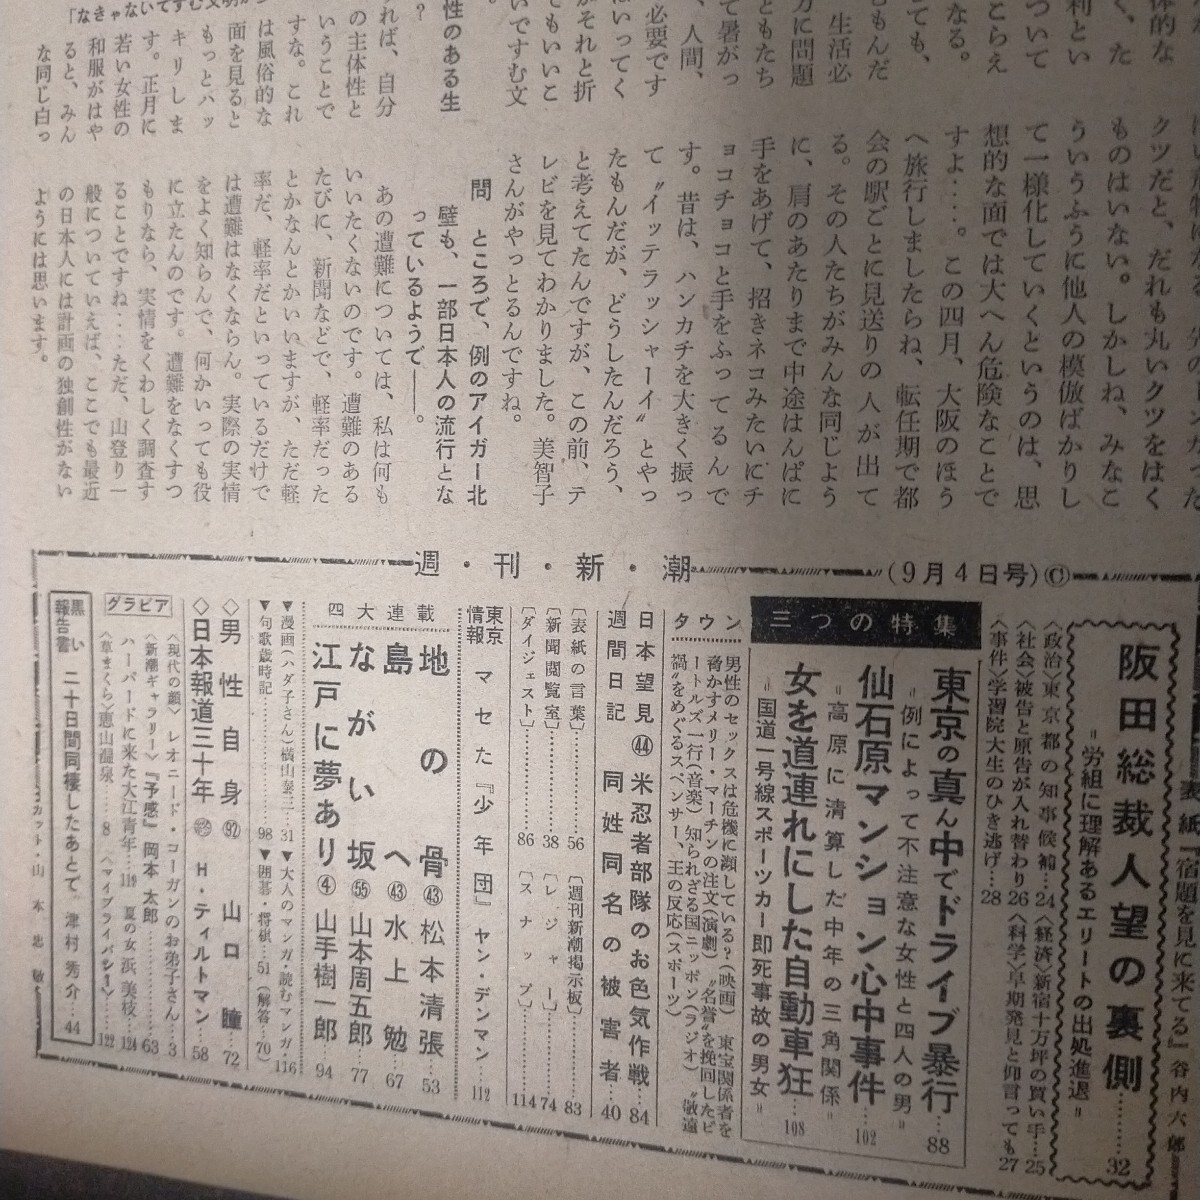 「なきゃないですむ文明が
体的な
く、た
利とい
ついて
こらえ
なる。
ても、
もんだ
生活必
力に問題
ともたち
て暑がっ
、人間、
必要です
はいってく
がそれと折
てもいいこ
ないですむ文
性のある生
?
れば、自分
の主体性と
いうことで
すな。これ
は風俗的な
面を見ると
もっとハッ
キリしま
す。正月に
若い女性の
和服がはや
ると、みん
な同じ白っ
クツだと、だれも丸いクツをはく
ものはいない。しかしね、みなこ
ういうふうに他人の模倣ばかりし
て一様化していくというのは、思
想的な面では大へん危険なことで
すよ‥‥。この四月、大阪のほう
へ旅行しましたらね、転任期で都
会の駅ごとに見送りの人が出て
る。その人たちがみんな同じよう
に、肩のあたりまで中途はんぱに
手をあげて、招きネコみたいにチ
ョコチョコと手をふってるんで
す。昔は、ハンカチを大きく振っ
て〝イッテラッシャーイ〟とやっ
たもんだが、どうしたんだろう、
と考えてたんですが、この前、テ
レビを見てわかりました。美智子
さんがやっとるんですね。
問 ところで、例のアイガー北
壁も、一部日本人の流行とな
っているようで――。
あの遭難については、私は何も
いいたくないのです。遭難のある
たびに、新聞などで、軽率だった
とかなんとかいいますが、ただ軽
率だ、軽率だといっているだけで
は遭難はなくならん。実際の実情
をよく知らんで、何かいっても役
に立たんのです。遭難をなくすつ
もりなら、実情をくわしく調査す
ることですね‥‥ただ、山登り一
般についていえば、ここでも最近
の日本人には計画の独創性がない
ようには思います。
週・刊・新・潮
(9月4日号)©
表紙「宿題を見に来てる」谷内六郎
阪田総裁人望の裏側……32
＝労組に理解あるエリートの出処進退＝
〈政治〉東京都の知事候補…24
〈経済〉新宿十万坪の買い手…25
〈社会〉被告と原告が入れ替わり26
〈科学〉早期発見と仰言っても27
〈事件〉学習院大生のひき逃げ…28
三つの特集
東京の真ん中でドライブ暴行…88
＝例によって不注意な女性と四人の男＝
仙石原マンション心中事件…102
＝高原に清算した中年の三角関係＝
女を道連れにした自動車狂…108
＝国道一号線スポーツカー即死事故の男女＝
タウン
男性のセックスは危機に瀕している？(映画)　東宝関係者を
脅かすメリー・マーチンの注文(演劇)　〝名誉〟を挽回したビ
ートルズ一行(音楽)　知られざる国ニッポン(ラジオ)　〝敬遠
禍〟をめぐるスペンサー、王の反応(スポーツ)
日本望見㊹米忍者部隊のお色気作戦…84
週間日記 同姓同名の被害者…40
〔表紙の言葉〕……56
〔週刊新潮掲示板〕……83
〔新聞閲覧室〕……38
〔レジャー〕……74
〔ダイジェスト〕……86
〔スナップ〕……114
東京情報 マセた『少年団』ヤン・デンマン…112
四大連載
地の骨㊸松本清張…53
島へ㊸水上勉…67
ながい坂㊺山本周五郎…77
江戸に夢あり④山手樹一郎…94
▼漫画(ハダ子さん)横山泰三…31
▲大人のマンガ・読むマンガ・116
▼句歌歳時記……98
▼囲碁・将棋…51(解答…70)
◇男性自身㊒ 山口瞳…72
◇日本報道三十年 H・ティルトマン…58
グラビア
〈現代の顔〉レオニード・コーガンのお弟子さん…3
〈新潮ギャラリー〉『予感』岡本太郎……63
ハーバードに来た大江青年…118
夏の女 浜美枝…124
〈草まくら〉恵山温泉…8
〈マイプライバシー〉…122
黒い報告書 二十日間同棲したあとで 津村秀介…44
カット・山本忠敬